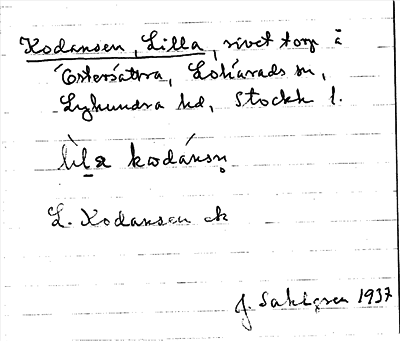 Kodansen, Lilla, rivet torp å
Östersätra, Lohärads sn,
Lyhundra hd, Stockh l.
lìla kodánsn̥
L. Kodansen ek
J. Sahlgren 1937